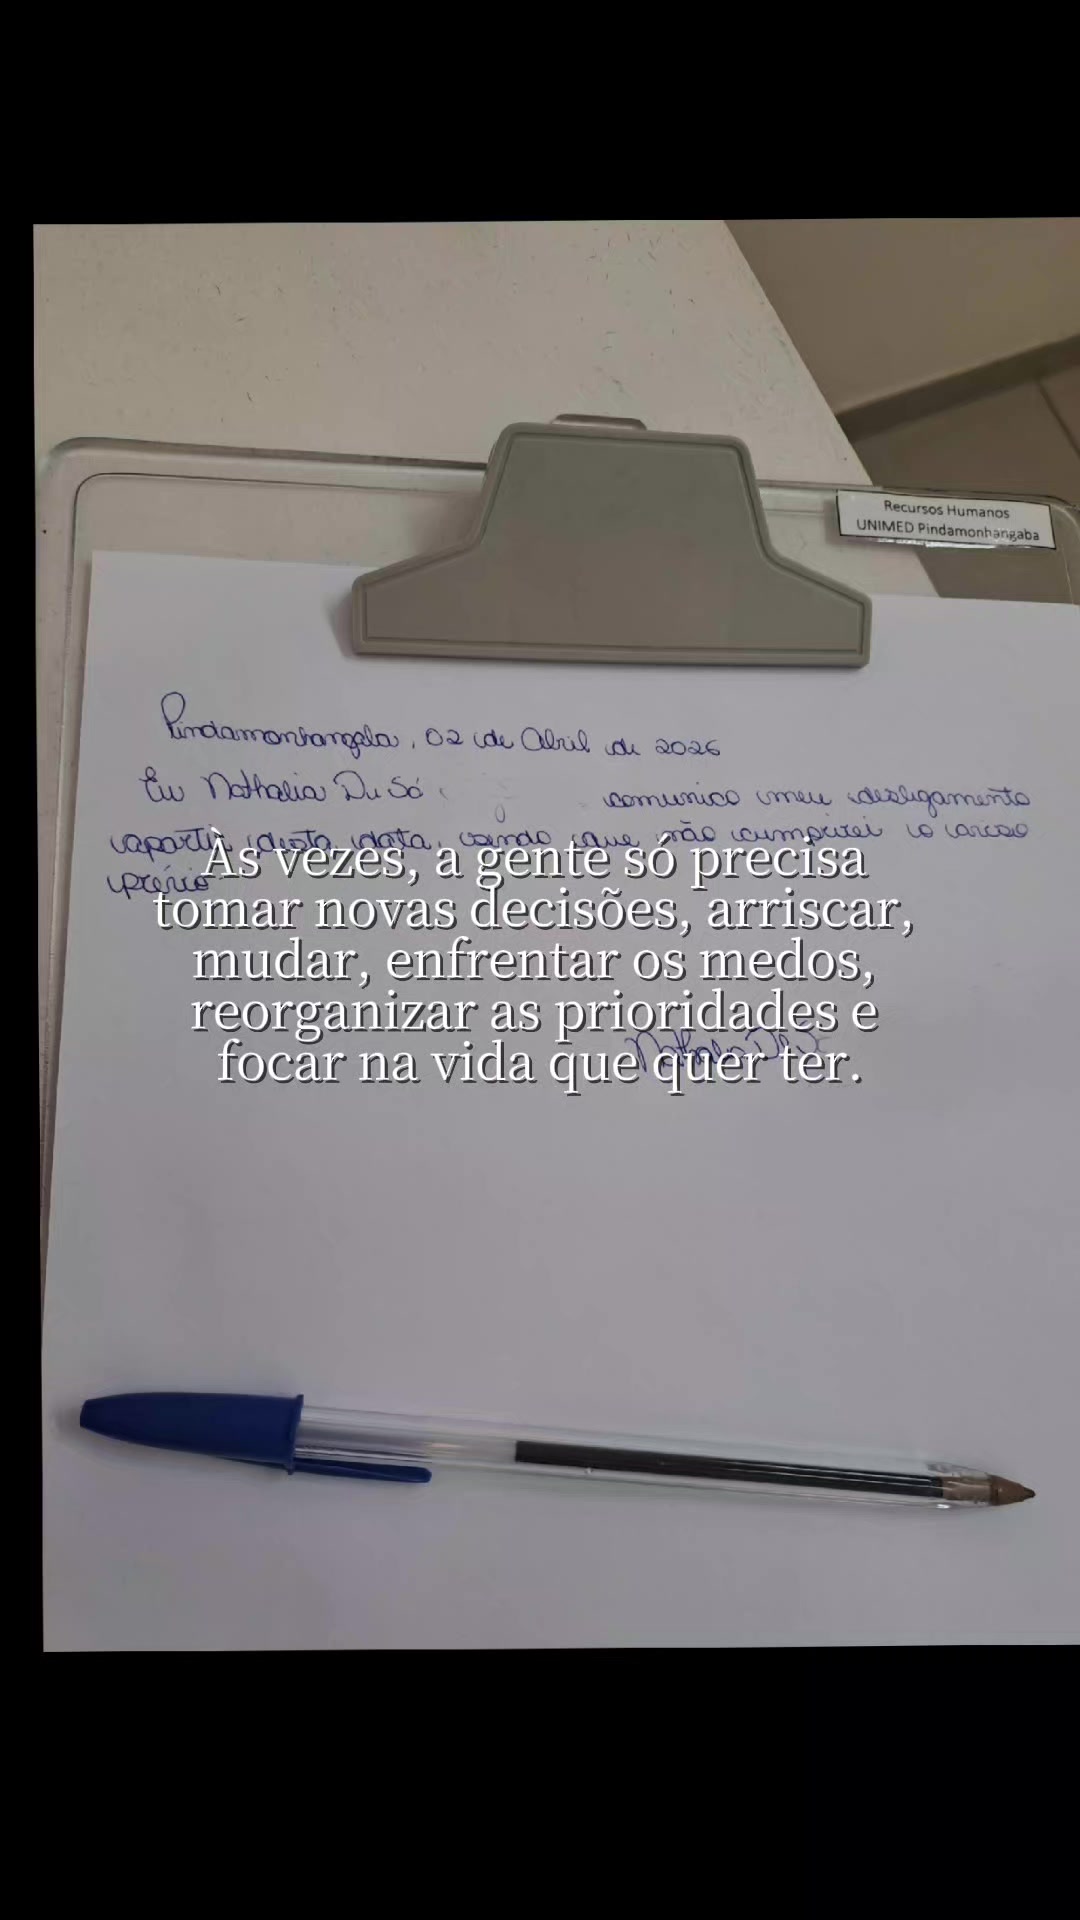 Recursos Humanos
UNIMED Pindamonhangaba
Pindamonhangaba, 02 de Abril de 2026
Eu Nathalia De Só comunico meu desligamento
apartir desta data, sendo que não cumprirei o aviso
prévio
Às vezes, a gente só precisa
tomar novas decisões, arriscar,
mudar, enfrentar os medos,
reorganizar as prioridades e
focar na vida que quer ter.
Nathalia De S